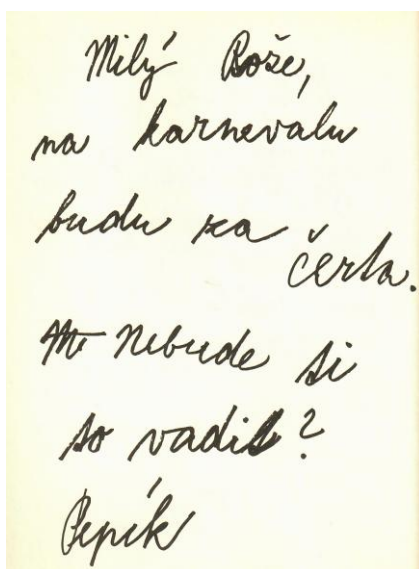 Milý Bože,
na karnevalu
budu za
čerta.
Nebude ti
to vadit?
Pepík